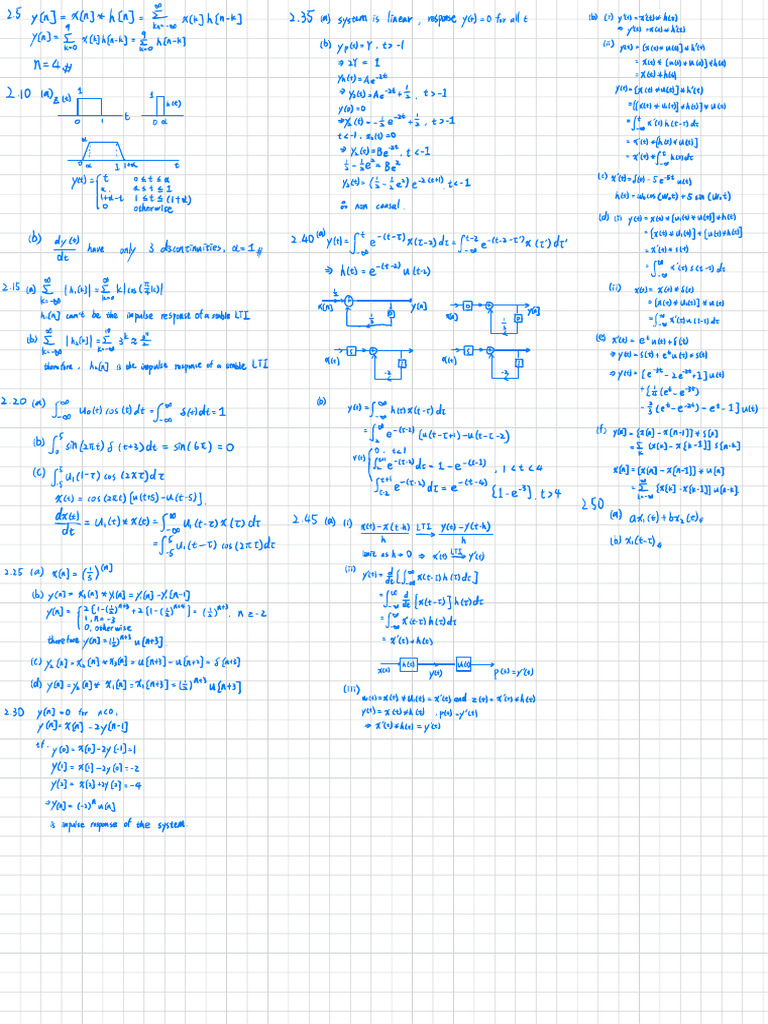 2.5 y[n] = x[n] * h[n] = ∑_{k=-∞}^{∞} x[k] h[n-k]
y[n] = ∑_{k=0}^{9} x[k] h[n-k] = ∑_{k=0}^{9} h[n-k]
n=4 #
2.10 (a) x(t) 1 0 1 t 1 h(t) 0 α
α 0 α 1 1+α t
y(t) = { t 0≤t≤α
α α≤t≤1
1+α-t 1≤t≤(1+α)
0 otherwise
(b) dy(t)/dt have only 3 discontinuities, α=1 #
2.15 (a) ∑_{k=-∞}^{∞} |h₁[k]| = ∑_{k=0}^{∞} k|cos(π/4 k)|
h₁[n] can't be the impulse response of a stable LTI
(b) ∑_{k=-∞}^{∞} |h₂[k]| =
therefore, h₂[n] is the impulse response of a stable LTI
2.20 (a) ∫_{-∞}^{∞} u₀(t) cos(t) dt = ∫_{-∞}^{∞} δ(t) dt = 1
(b) ∫_{0}^{5} sin(2πt) δ(t+3) dt = sin(6π) = 0
(c) ∫_{-5}^{5} u₁(1-τ) cos(2πτ) dτ
x(t) = cos(2πt) [u(t+5) - u(t-5)]
dx(t)/dt = u₁(t) * x(t) = ∫_{-∞}^{∞} u₁(t-τ) x(τ) dτ
= ∫_{-5}^{5} u₁(t-τ) cos(2πτ) dτ
2.25 (a)
(b) y₁[n] = x₁[n] * x₂[n] =
1, n=-3
0, otherwise
therefore y₁[n] = (1/2)^{n+3} u[n+3]
(c) y₂[n] = x₂[n] * x₃[n] = u[n+3] - u[n+2] = δ[n+3]
(d) y[n] = y₂[n] * x₁[n] = x₁[n+3] = (1/2)^{n+3} u[n+3]
2.30 y[n] = 0 for n<0,
y[n] = x[n] - 2y[n-1]
if. y[0] = x[0] - 2y[-1] = 1
y[1] = x[1] - 2y[0] = -2
y[2] = x[2] + 2y[2] = -4
⇒ y[n] = (-2)ⁿ u[n]
is impulse response of the system.
2.35 (a) system is linear, response y(t) = 0 for all t
(b) y_p(t) = Y, t>-1
⇒ 2Y = 1
y_h(t) = Ae^{-2t}
⇒ y₂(t) = Ae^{-2t} + 1/2, t>-1
y(0) = 0
⇒ y₂(t) = -1/2 e^{-2t} + 1/2, t>-1
t<-1, x₂(t) = 0
⇒ y₂(t) = Be^{-2t}, t<-1
1/2 - 1/2 e² = Be²
y₂(t) = (1/2 - 1/2 e²) e^{-2(t+1)}, t<-1
is non causal.
2.40 (a) y(t) = ∫_{-∞}^{t} e^{-(t-τ)} x(τ-2) dτ = ∫_{-∞}^{t-2} e^{-(t-2-τ')} x(τ') dτ'
⇒ h(t) = e^{-(t-2)} u(t-2)
x[n] y[n] x[n] y[n]
x(t) x(t)
(b) y(t) = ∫_{-∞}^{∞} h(τ) x(t-τ) dτ
= ∫_{2}^{∞} e^{-(τ-2)} [u(t-τ+1) - u(t-τ-2)]
y(t) { 0, t<1
∫_{2}^{t+1} e^{-(τ-2)} dτ = 1-e^{-(t-1)}, 1<t<4
∫_{t-2}^{t+1} e^{-(τ-2)} dτ = e^{-(t-4)} {1-e^{-3}}, t>4
2.45 (a) (i) x(t)-x(t-h)/h LTI→ y(t)-y(t-h)/h
limit as h→0 ⇒ x'(t) LTI→ y'(t)
(ii) y'(t) = d/dt [∫_{-∞}^{∞} x(t-τ) h(τ) dτ]
= ∫_{-∞}^{∞} d/dt [x(t-τ)] h(τ) dτ
= ∫_{-∞}^{∞} x'(t-τ) h(τ) dτ
= x'(t) * h(t)
x(t) h(t) y(t) u₁(t) p(t) = y'(t)
(iii) w(t) = x(t) * u₁(t) = x'(t) and z(t) = x'(t) * h(t)
y(t) = x(t) * h(t), p(t) = y'(t)
⇒ x'(t) * h(t) = y'(t)
(b) (i) y'(t) = x'(t) * h(t)
⇒ y'(t) = x(t) * h'(t)
(ii) y(t) = (x(t) * u(t)) * h'(t)
= x(t) * [u(t) * u₁(t)] * h(t)
= x(t) * h(t)
y(t) = [x(t) * u(t)] * h'(t)
= [(x(t) * u₁(t)) * h(t)] * u(t)
= ∫_{-∞}^{t} x'(τ) h(t-τ) dτ
= x'(t) * [h(t) * u(t)]
= x'(t) * ∫_{-∞}^{t} h(τ) dτ
(c) x'(t) = δ(t) - 5e^{-5t} u(t)
h(t) = ω₀ cos(ω₀t) + 5 sin(ω₀t)
(d) (i) y(t) = x(t) * [u₁(t) * u(t)] * h(t)
= [x(t) * u₁(t)] * [u(t) * h(t)]
= x'(t) * s(t)
= ∫_{-∞}^{∞} x'(τ) s(t-τ) dτ
(ii) x(t) = x(t) * δ(t)
= [x(t) * u₁(t)] * u(t)
(e) x'(t) = eᵗ u(t) + δ(t)
⇒ y(t) = s(t) + eᵗ u(t) * s(t)
⇒ y(t) = [e^{-3t} - 2e^{-2t} + 1] u(t)
(f) y[n] = [x[n] - x[n-1]] * s[n]
= ∑_{k} [x[k] - x[k-1]] s[n-k]
x[n] = [x[n] - x[n-1]] * u[n]
= ∑_{k=-∞}^{∞} [x[k] - x[k-1]] u[n-k].
2.50
(a) ax₁(t) + bx₂(t) #
(b) x₁(t-τ) #